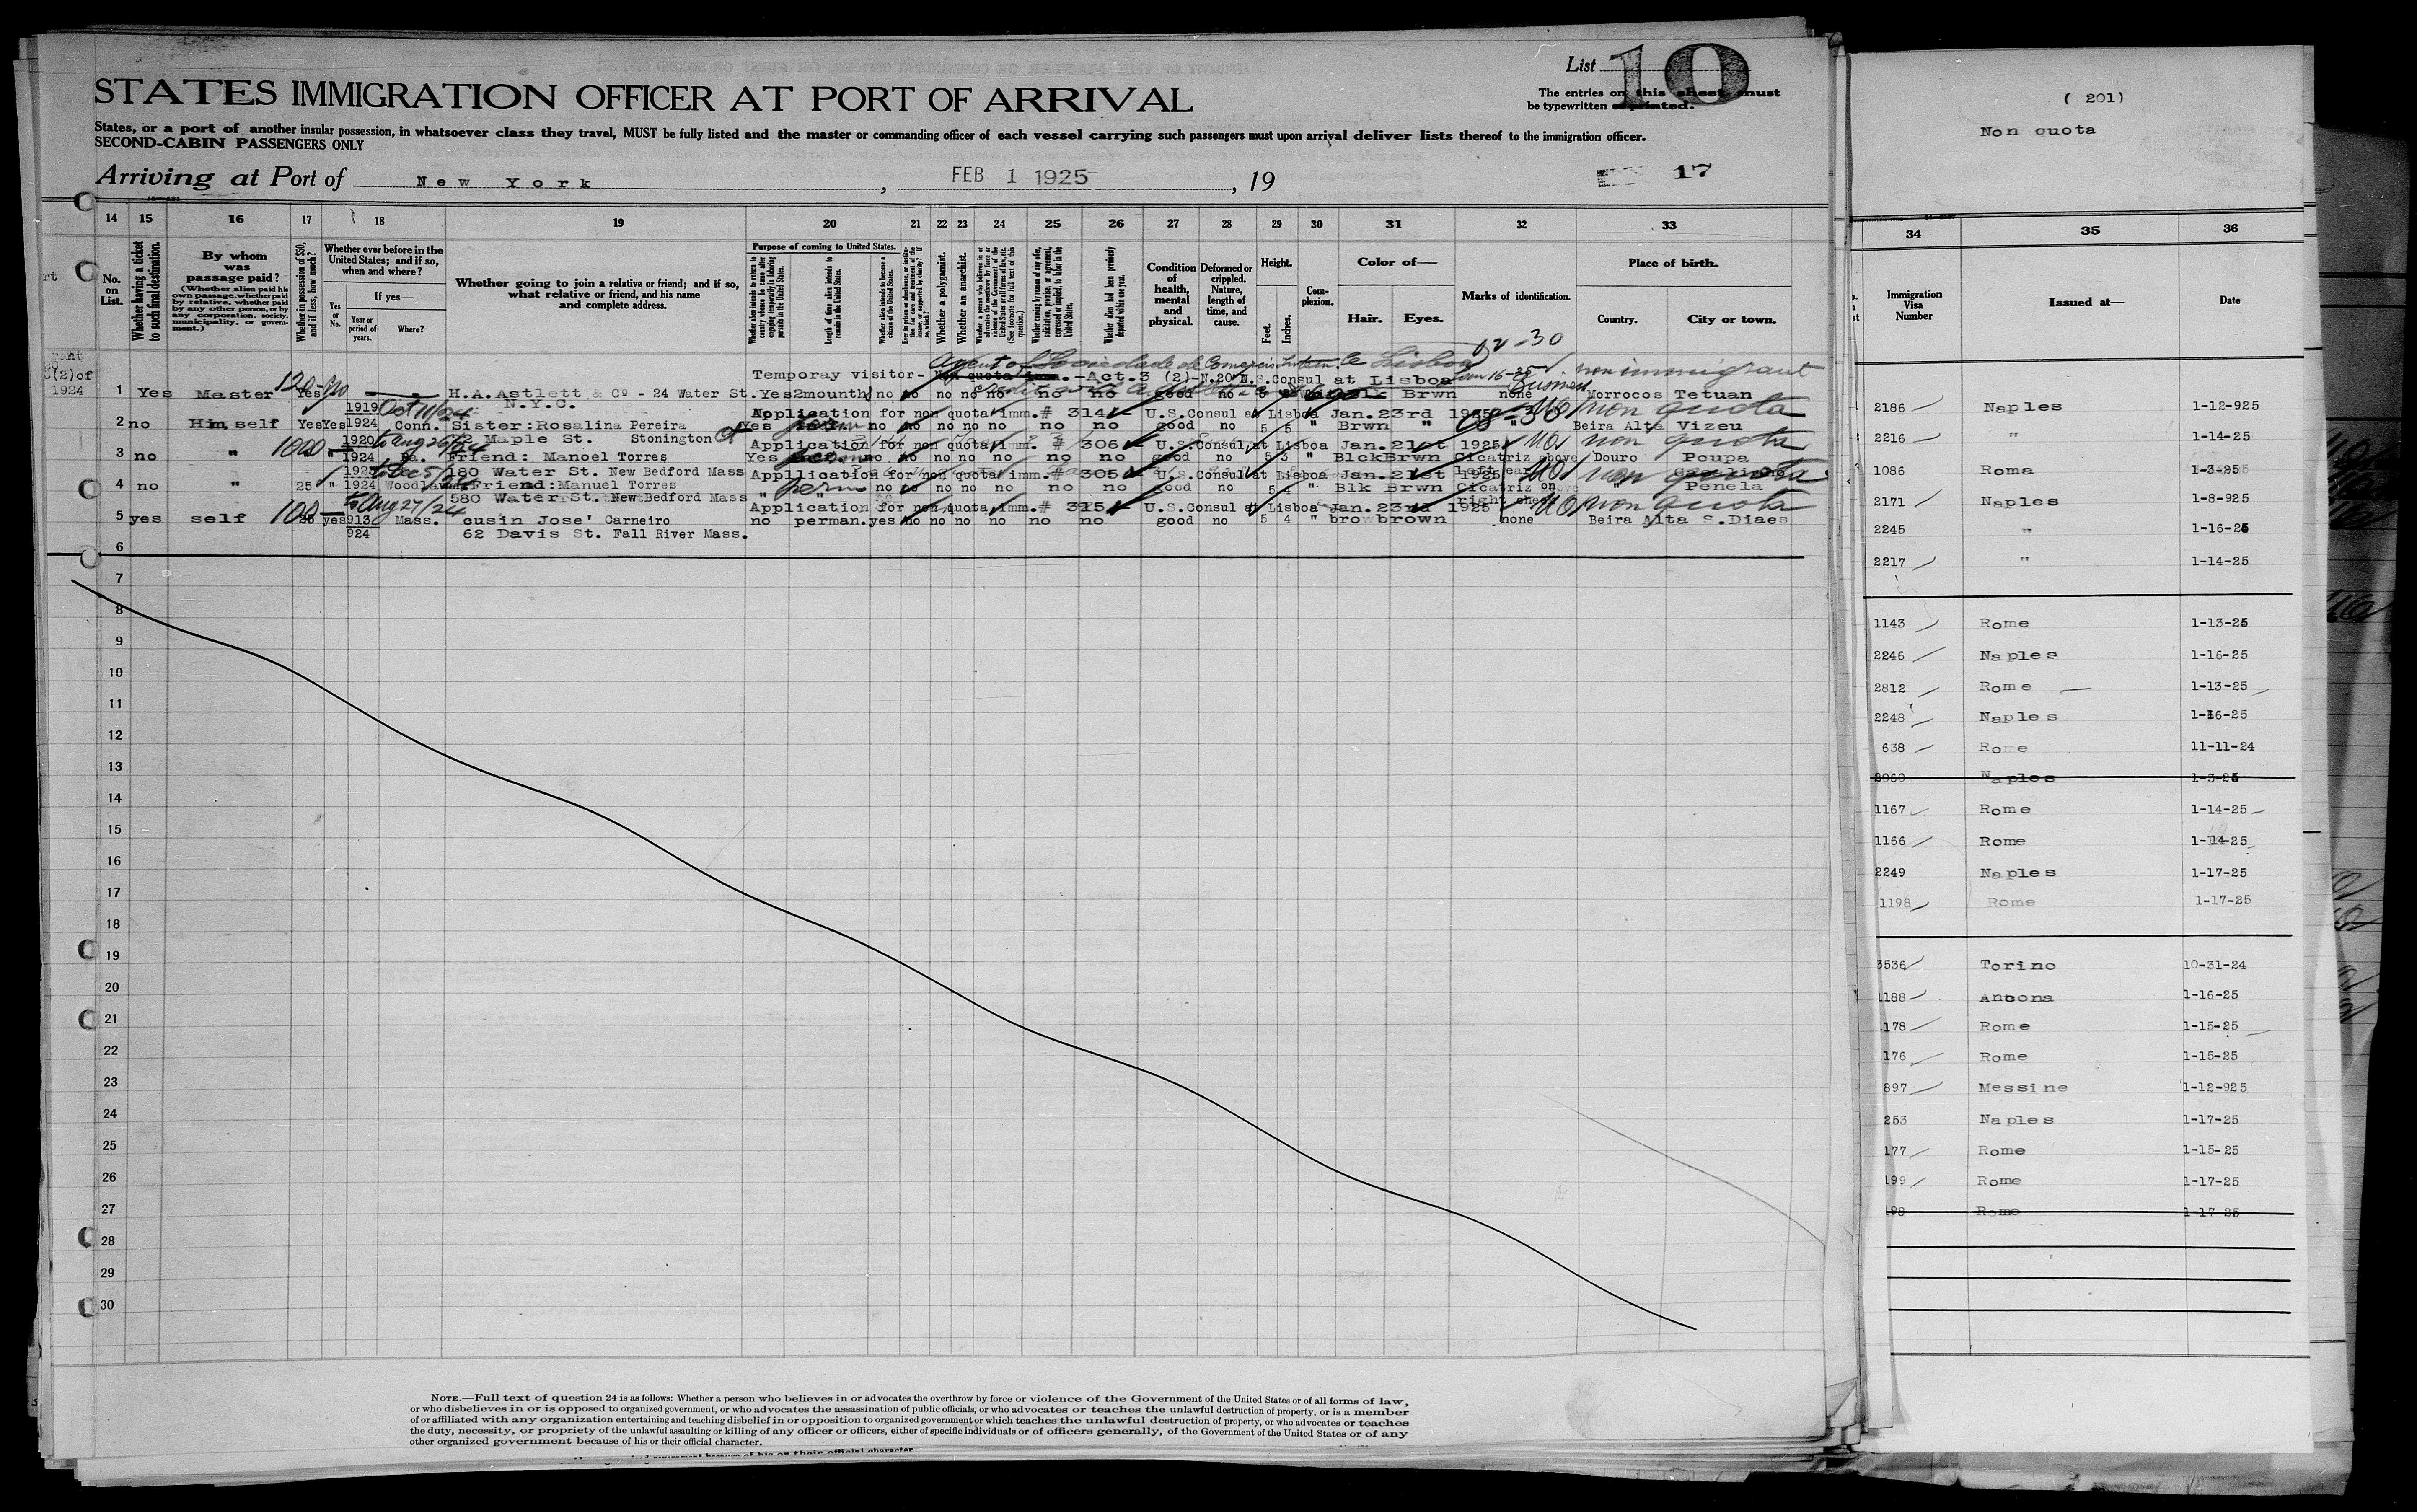 List 10
STATES IMMIGRATION OFFICER AT PORT OF ARRIVAL
The entries on this sheet must
be typewritten or printed.
States, or a port of another insular possession, in whatsoever class they travel, MUST be fully listed and the master or commanding officer of each vessel carrying such passengers must upon arrival deliver lists thereof to the immigration officer.
SECOND-CABIN PASSENGERS ONLY
Arriving at Port of New York, FEB 1 1925, 19
17
14 15 16 17 18 19 20 21 22 23 24 25 26 27 28 29 30 31 32 33
No. on List.
Whether having a ticket to such final destination.
By whom was passage paid?
(Whether alien paid his own passage, whether paid by relative, whether paid by any other person, or by any corporation, society, municipality, or government.)
Whether in possession of $50, and if less, how much?
Whether ever before in the United States; and if so, when and where?
Yes or No.
If yes—
Year or period of years.
Where?
Whether going to join a relative or friend; and if so, what relative or friend, and his name and complete address.
Purpose of coming to United States.
Length of time alien intends to remain in the United States.
Whether a polygamist.
Whether an anarchist.
Condition of health, mental and physical.
Deformed or crippled. Nature, length of time, and cause.
Height.
Feet.
Inches.
Complexion.
Color of—
Hair.
Eyes.
Marks of identification.
Place of birth.
Country.
City or town.
12-30
1924
Temporay visitor- Act.3 (2)-N.20 U.S.Consul at Lisboa non immigrant
1 Yes Master Yes no H.A.Astlett & Cº - 24 Water St. Yes 2mounth no no no no no no no good no Brwn none Morrocos Tetuan
N.Y.C.
1919 Oct 11/24 Application for non quota imm.# 314 U.S.Consul at Lisboa Jan.23rd 1925 non quota
2 no Him self Yes Yes 1924 Conn. Sister:Rosalina Pereira Yes perm no no no no no no no good no 5 5 " Brwn " " Beira Alta Vizeu
1920 to Aug 26/24 2 Maple St. Stonington Ct Application for non quota imm. # 306 U.S.Consul at Lisboa Jan.21st 1925 non quota
3 no " 1000 " 1924 Pa. Friend: Manoel Torres Yes no no no no no no no good no 5 3 " Blck Brwn Cicatriz above Douro Poupa
180 Water St. New Bedford Mass Application for non quota imm.# 305 U.S.Consul at Lisboa Jan.21st 1925 left ear non quota
4 no " 25 " 1924 Woodlawn Friend:Manuel Torres perm no no no no no no no good no 5 4 " Blk Brwn Cicatriz on " Penela
580 Water St. New Bedford Mass
to Aug 27/24 Application for non quota imm.# 315 U.S.Consul at Lisboa Jan.23rd 1925 non quota
5 yes self 100 25 yes 913 Mass. cusin Jose' Carneiro no perman. yes no no no no no no good no 5 4 " brow brown none Beira Alta S.Diaes
924 62 Davis St. Fall River Mass.
6
7
8
9
10
11
12
13
14
15
16
17
18
19
20
21
22
23
24
25
26
27
28
29
30
NOTE.—Full text of question 24 is as follows: Whether a person who believes in or advocates the overthrow by force or violence of the Government of the United States or of all forms of law,
or who disbelieves in or is opposed to organized government, or who advocates the assassination of public officials, or who advocates or teaches the unlawful destruction of property, or is a member
of or affiliated with any organization entertaining and teaching disbelief in or opposition to organized government or which teaches the unlawful destruction of property, or who advocates or teaches
the duty, necessity, or propriety of the unlawful assaulting or killing of any officer or officers, either of specific individuals or of officers generally, of the Government of the United States or of any
other organized government because of his or their official character.
( 201)
Non quota
34 35 36
Immigration Visa Number
Issued at—
Date
2186 Naples 1-12-925
2216 " 1-14-25
1086 Roma 1-3-25
2171 Naples 1-8-925
2245 " 1-16-25
2217 " 1-14-25
1143 Rome 1-13-25
2246 Naples 1-16-25
2812 Rome 1-13-25
2248 Naples 1-16-25
638 Rome 11-11-24
2060 Naples 1-3-25
1167 Rome 1-14-25
1166 Rome 1-14-25
2249 Naples 1-17-25
1198 Rome 1-17-25
3536 Torino 10-31-24
1188 Ancona 1-16-25
178 Rome 1-15-25
176 Rome 1-15-25
897 Messine 1-12-925
253 Naples 1-17-25
177 Rome 1-15-25
199 Rome 1-17-25
198 Rome 1-17-25